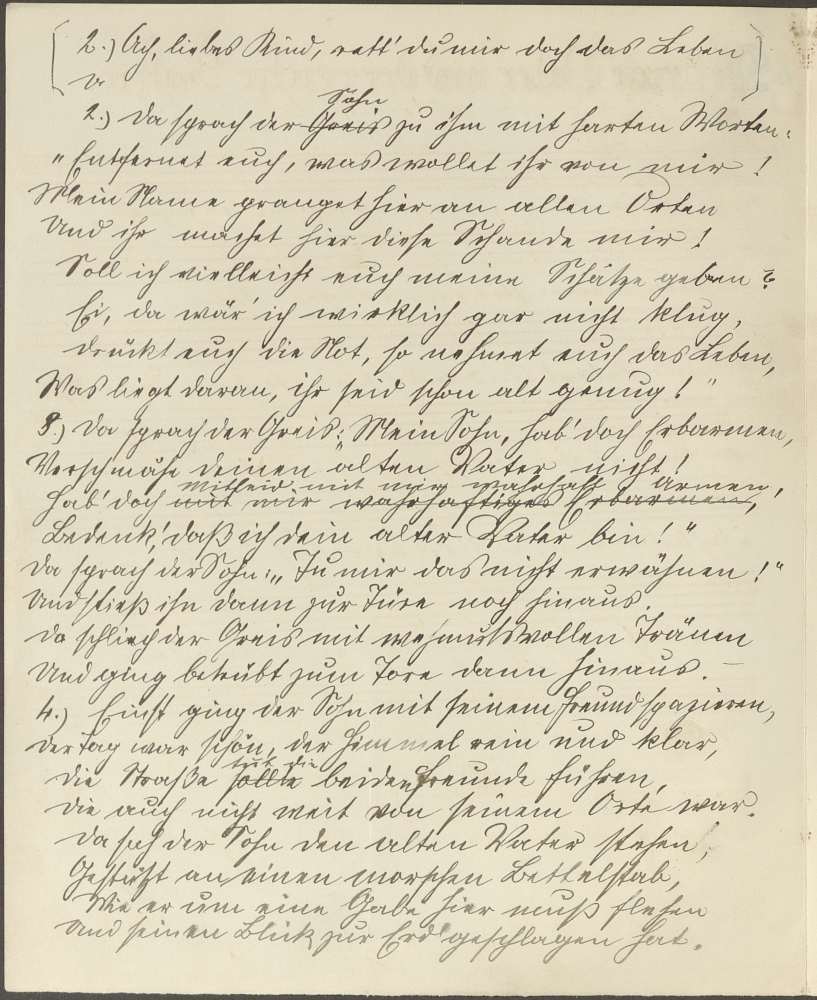 2.) Ach, liebes Kind, rett' du mir doch das Leben
2.) Da sprach der Greis Sohn zu ihm mit harten Worten:
"Entfernet euch, was wollet ihr von mir!
Mein Name pranget hier an allen Orten
Und ihr machet hier diese Schande mir!
Soll ich vielleicht euch meine Schätze geben?
Ei, da wär' ich wirklich gar nicht klug,
drückt euch die Not, so nehmet euch das Leben,
Was liegt daran, ihr seid schon alt genug!"
3.) Da sprach der Greis: Mein Sohn, hab' doch Erbarmen,
Verschmähe deinen alten Vater nicht!
Mitleid mit mir wahrhaft Armen,
Hab' doch mit mir wahrhaftiges Erbarmen,
Bedenk', daß ich dein alter Vater bin!"
Da sprach der Sohn: "Tu mir das nicht erwähnen!"
Und stieß ihn dann zur Türe noch hinaus.
Da schliech der Greis mit wehmutsvollen Tränen
Und ging betrübt zum Tore dann hinaus. –
4.) Einst ging der Sohn mit seinem Freund spazieren,
Der Tag war schön, der Himmel rein und klar,
tut die
Die Straße sollte beiden Freunde führen,
Die auch nicht weit von seinem Orte war.
Da sah der Sohn den alten Vater stehen,
Gestützt an einen morschen Bettelstab,
Wie er um eine Gabe hier muß flehen
Und seinen Blick zur Erd' geschlagen hat.